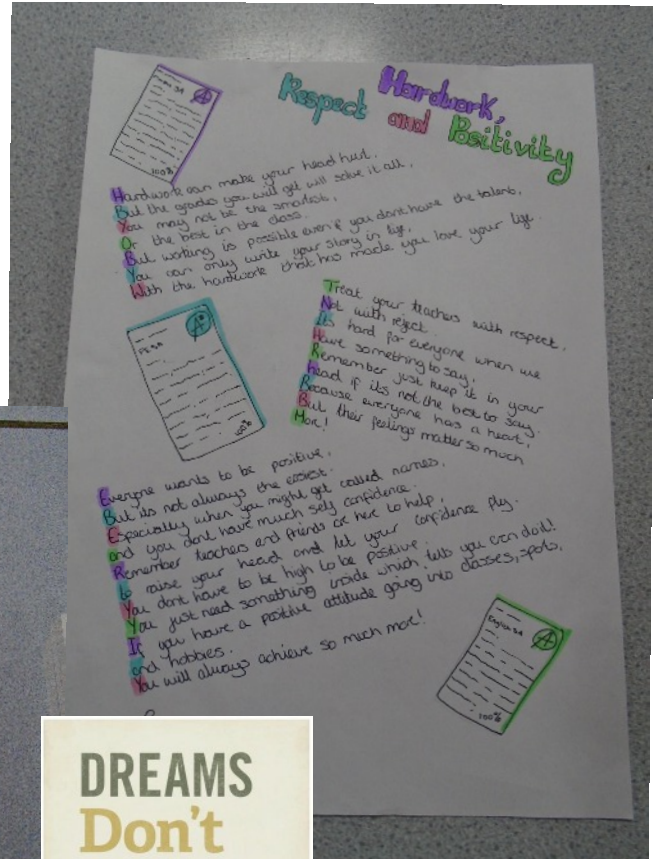 Respect Hardwork,
and Positivity
Hardwork can make your head hurt,
But the grades you will get will solve it all,
You may not be the smartest,
Or the best in the class.
But working is possible even if you dont have the talent,
You can only write your story in life,
With the hardwork that has made you love your life.
A
100%
Treat your teachers with respect,
Not with reject.
Its hard for everyone when we
Have something to say,
Remember just keep it in your
head if its not the best to say.
Because everyone has a heart,
But their feelings matter so much
More!
A*
100%
Everyone wants to be positive,
But its not always the easiest.
Especially when you might get called names,
and you dont have much self confidence.
Remember teachers and friends are here to help,
to raise your head and let your confidence fly.
You dont have to be high to be positive.
You just need something inside which tells you you can do it!
If you have a positive attitude going into classes, sports,
and hobbies.
You will always achieve so much more!
English SA
A
100%
DREAMS
Don't